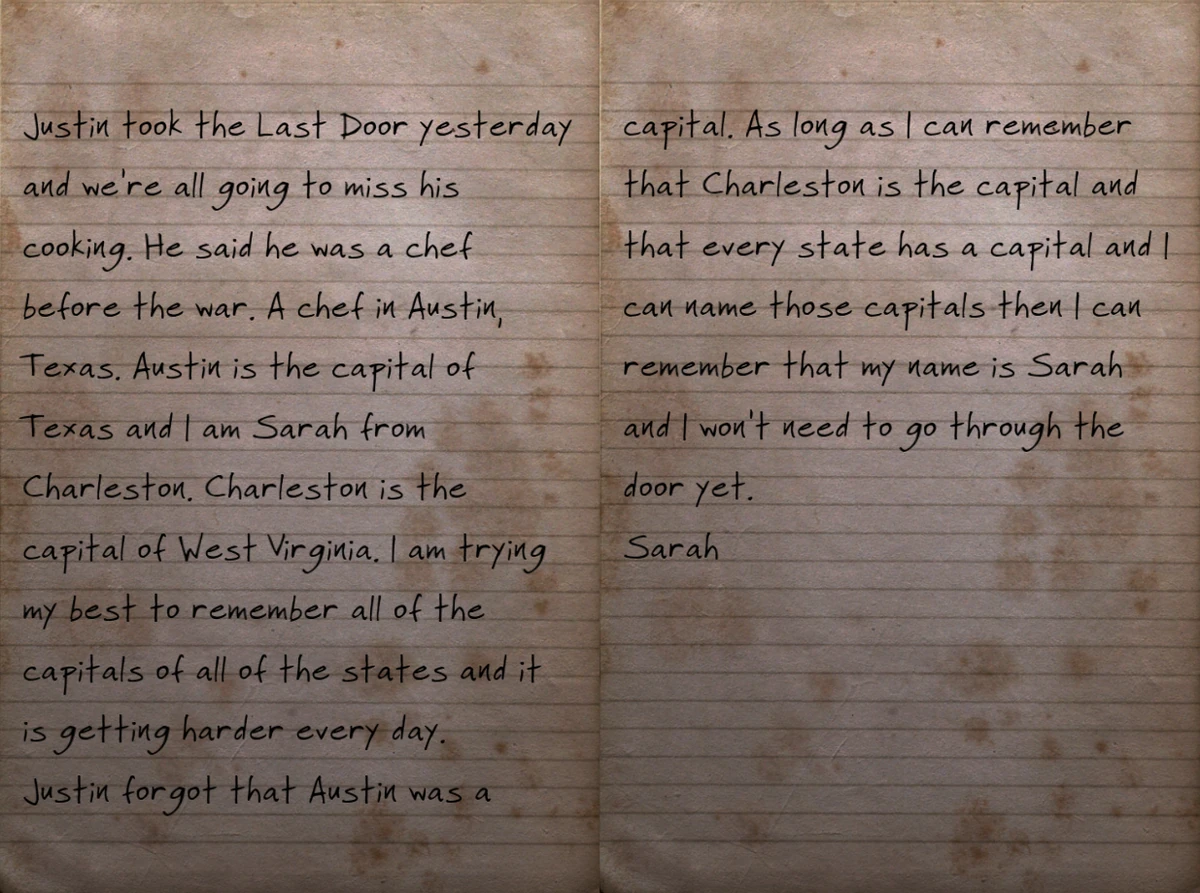 Justin took the Last Door yesterday
and we're all going to miss his
cooking. He said he was a chef
before the war. A chef in Austin,
Texas. Austin is the capital of
Texas and I am Sarah from
Charleston. Charleston is the
capital of West Virginia. I am trying
my best to remember all of the
capitals of all of the states and it
is getting harder every day.
Justin forgot that Austin was a
capital. As long as I can remember
that Charleston is the capital and
that every state has a capital and I
can name those capitals then I can
remember that my name is Sarah
and I won't need to go through the
door yet.
Sarah